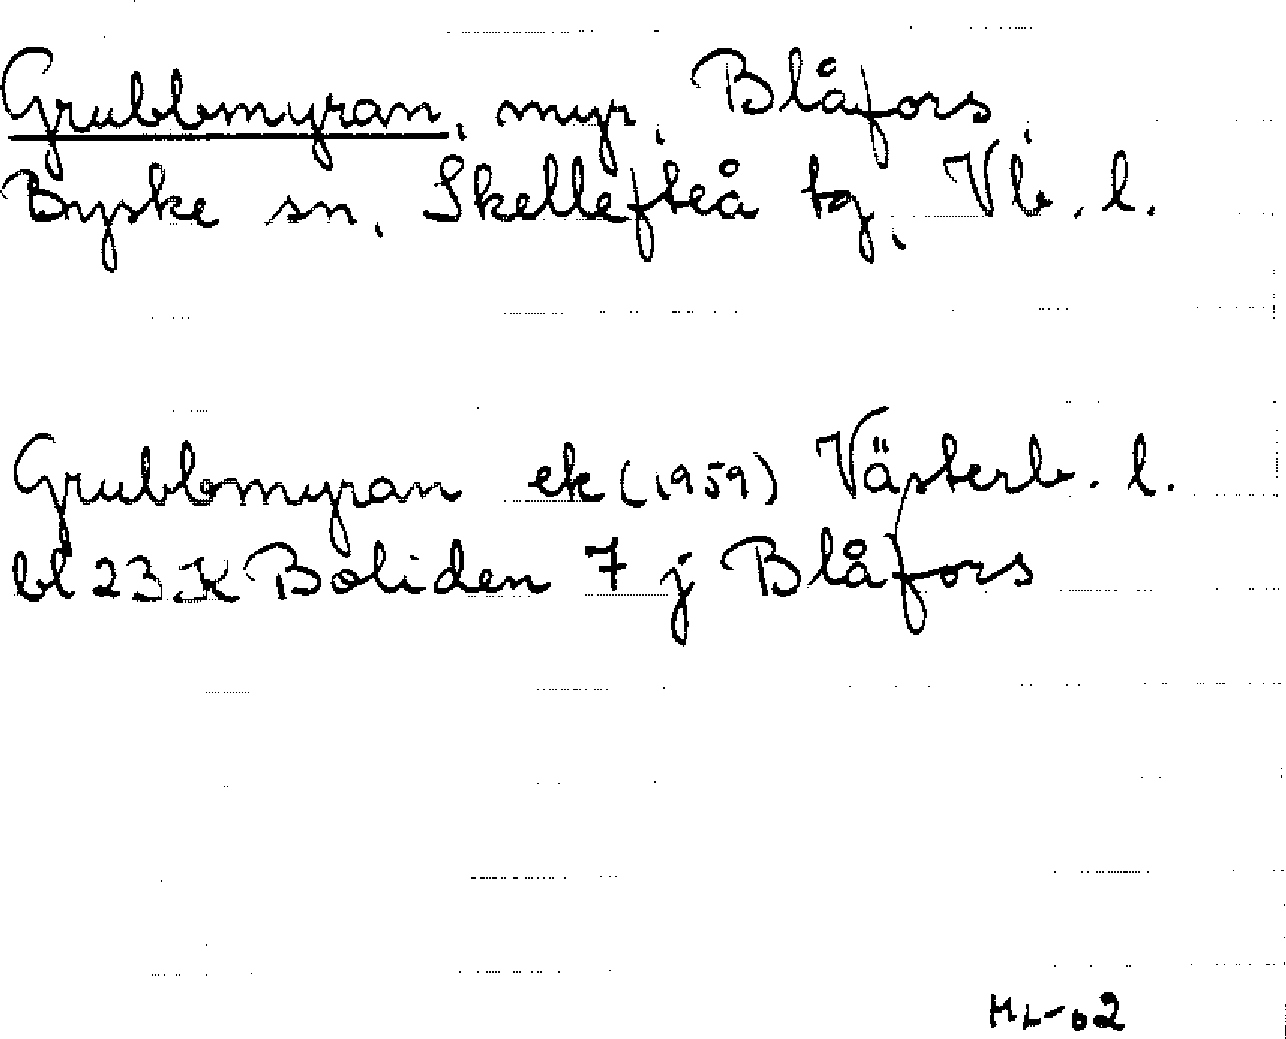 Grubbmyran, myr, Blåfors,
Byske sn, Skellefteå tg, Vb. l.
Grubbmyran ek (1959) Västerb. l.
bl 23 K Boliden 7 j Blåfors
HL-62